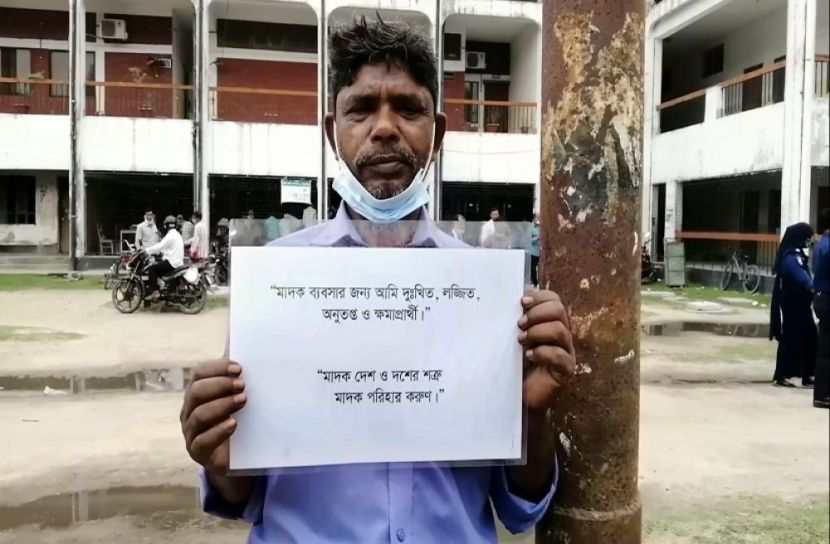 “মাদক ব্যবসার জন্য আমি দুঃখিত, লজ্জিত,
অনুতপ্ত ও ক্ষমাপ্রার্থী।”
“মাদক দেশ ও দশের শত্রু
মাদক পরিহার করুণ।”